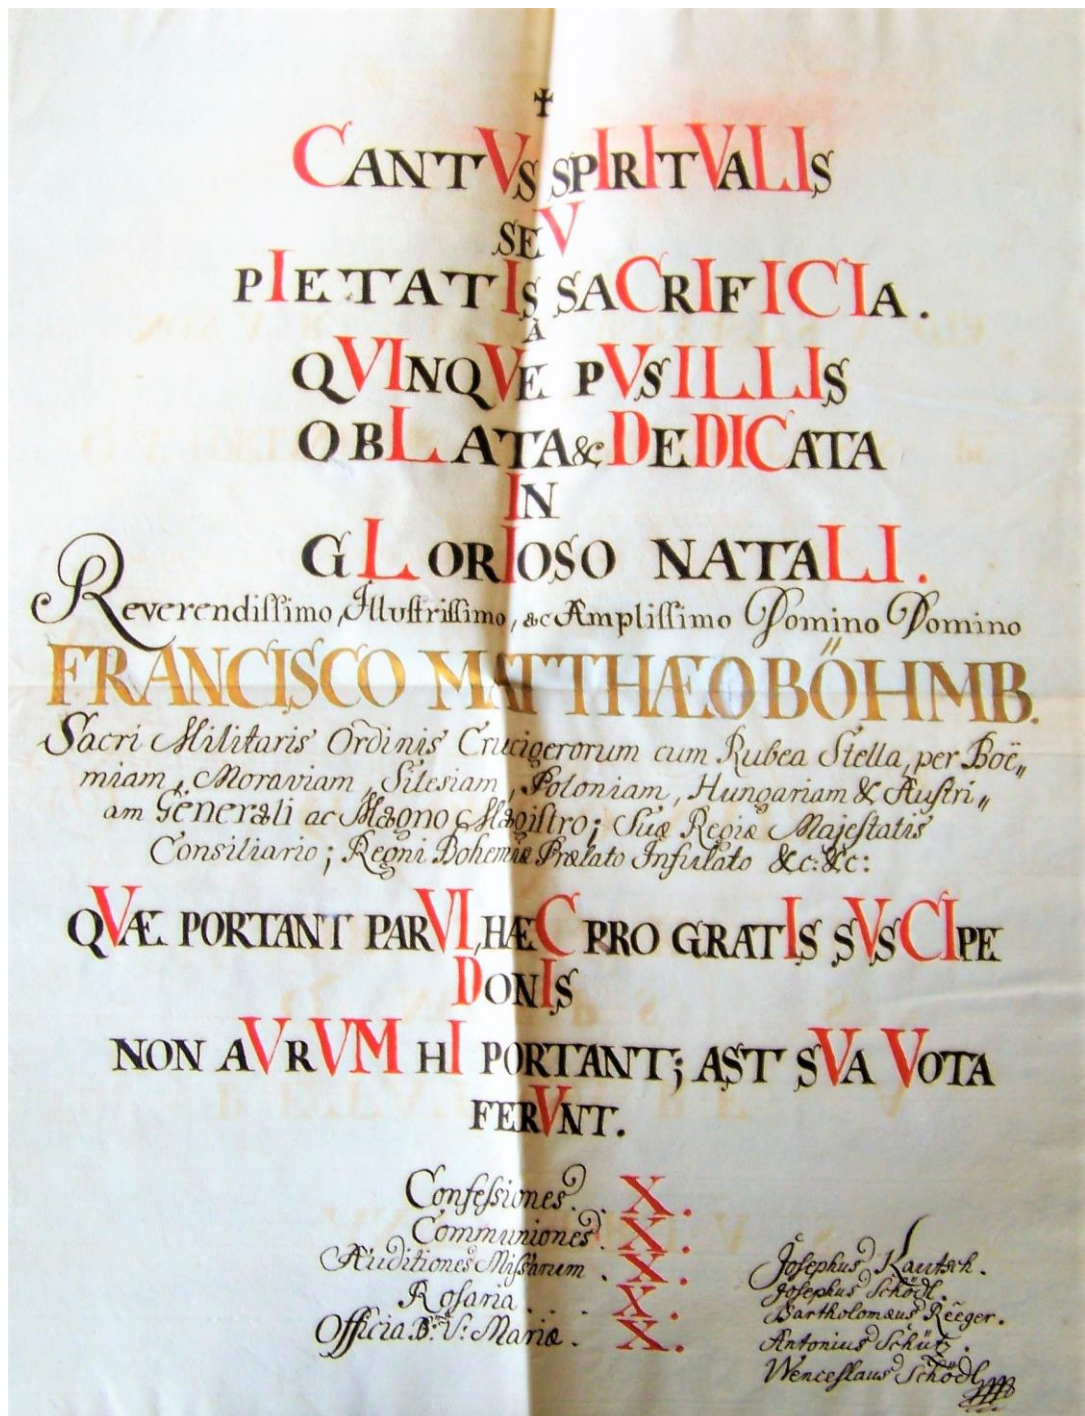 ✝
CANTVS SPIRITVALIS
SEV
PIETATIS SACRIFICIA.
À
QVINQVE PVSILLIS
OBLATA & DEDICATA
IN
GLORIOSO NATALI.
Reverendissimo, Illustrissimo, ac Amplissimo Domino Domino
FRANCISCO MATTHÆO BÖHMB.
Sacri Militaris Ordinis Crucigerorum cum Rubea Stella, per Boë„
miam, Moraviam, Silesiam, Poloniam, Hungariam & Austri„
am Generali ac Magno Magistro; Suæ Regiæ Majestatis
Consiliario; Regni Bohemiæ Prælato Infulato &c: &c:
QVÆ PORTANT PARVI, HÆC PRO GRATIS SVSCIPE
DONIS
NON AVRVM HI PORTANT; AST SVA VOTA
FERVNT.
Confessiones. . X.
Communiones. X.
Auditiones Missarum . X.
Rosaria . . . . X.
Officia B: V: Mariæ . X.
Josephus Kautsch.
Josephus Schödl.
Bartholomæus Reeger.
Antonius Schütz.
Wenceslaus Schödl